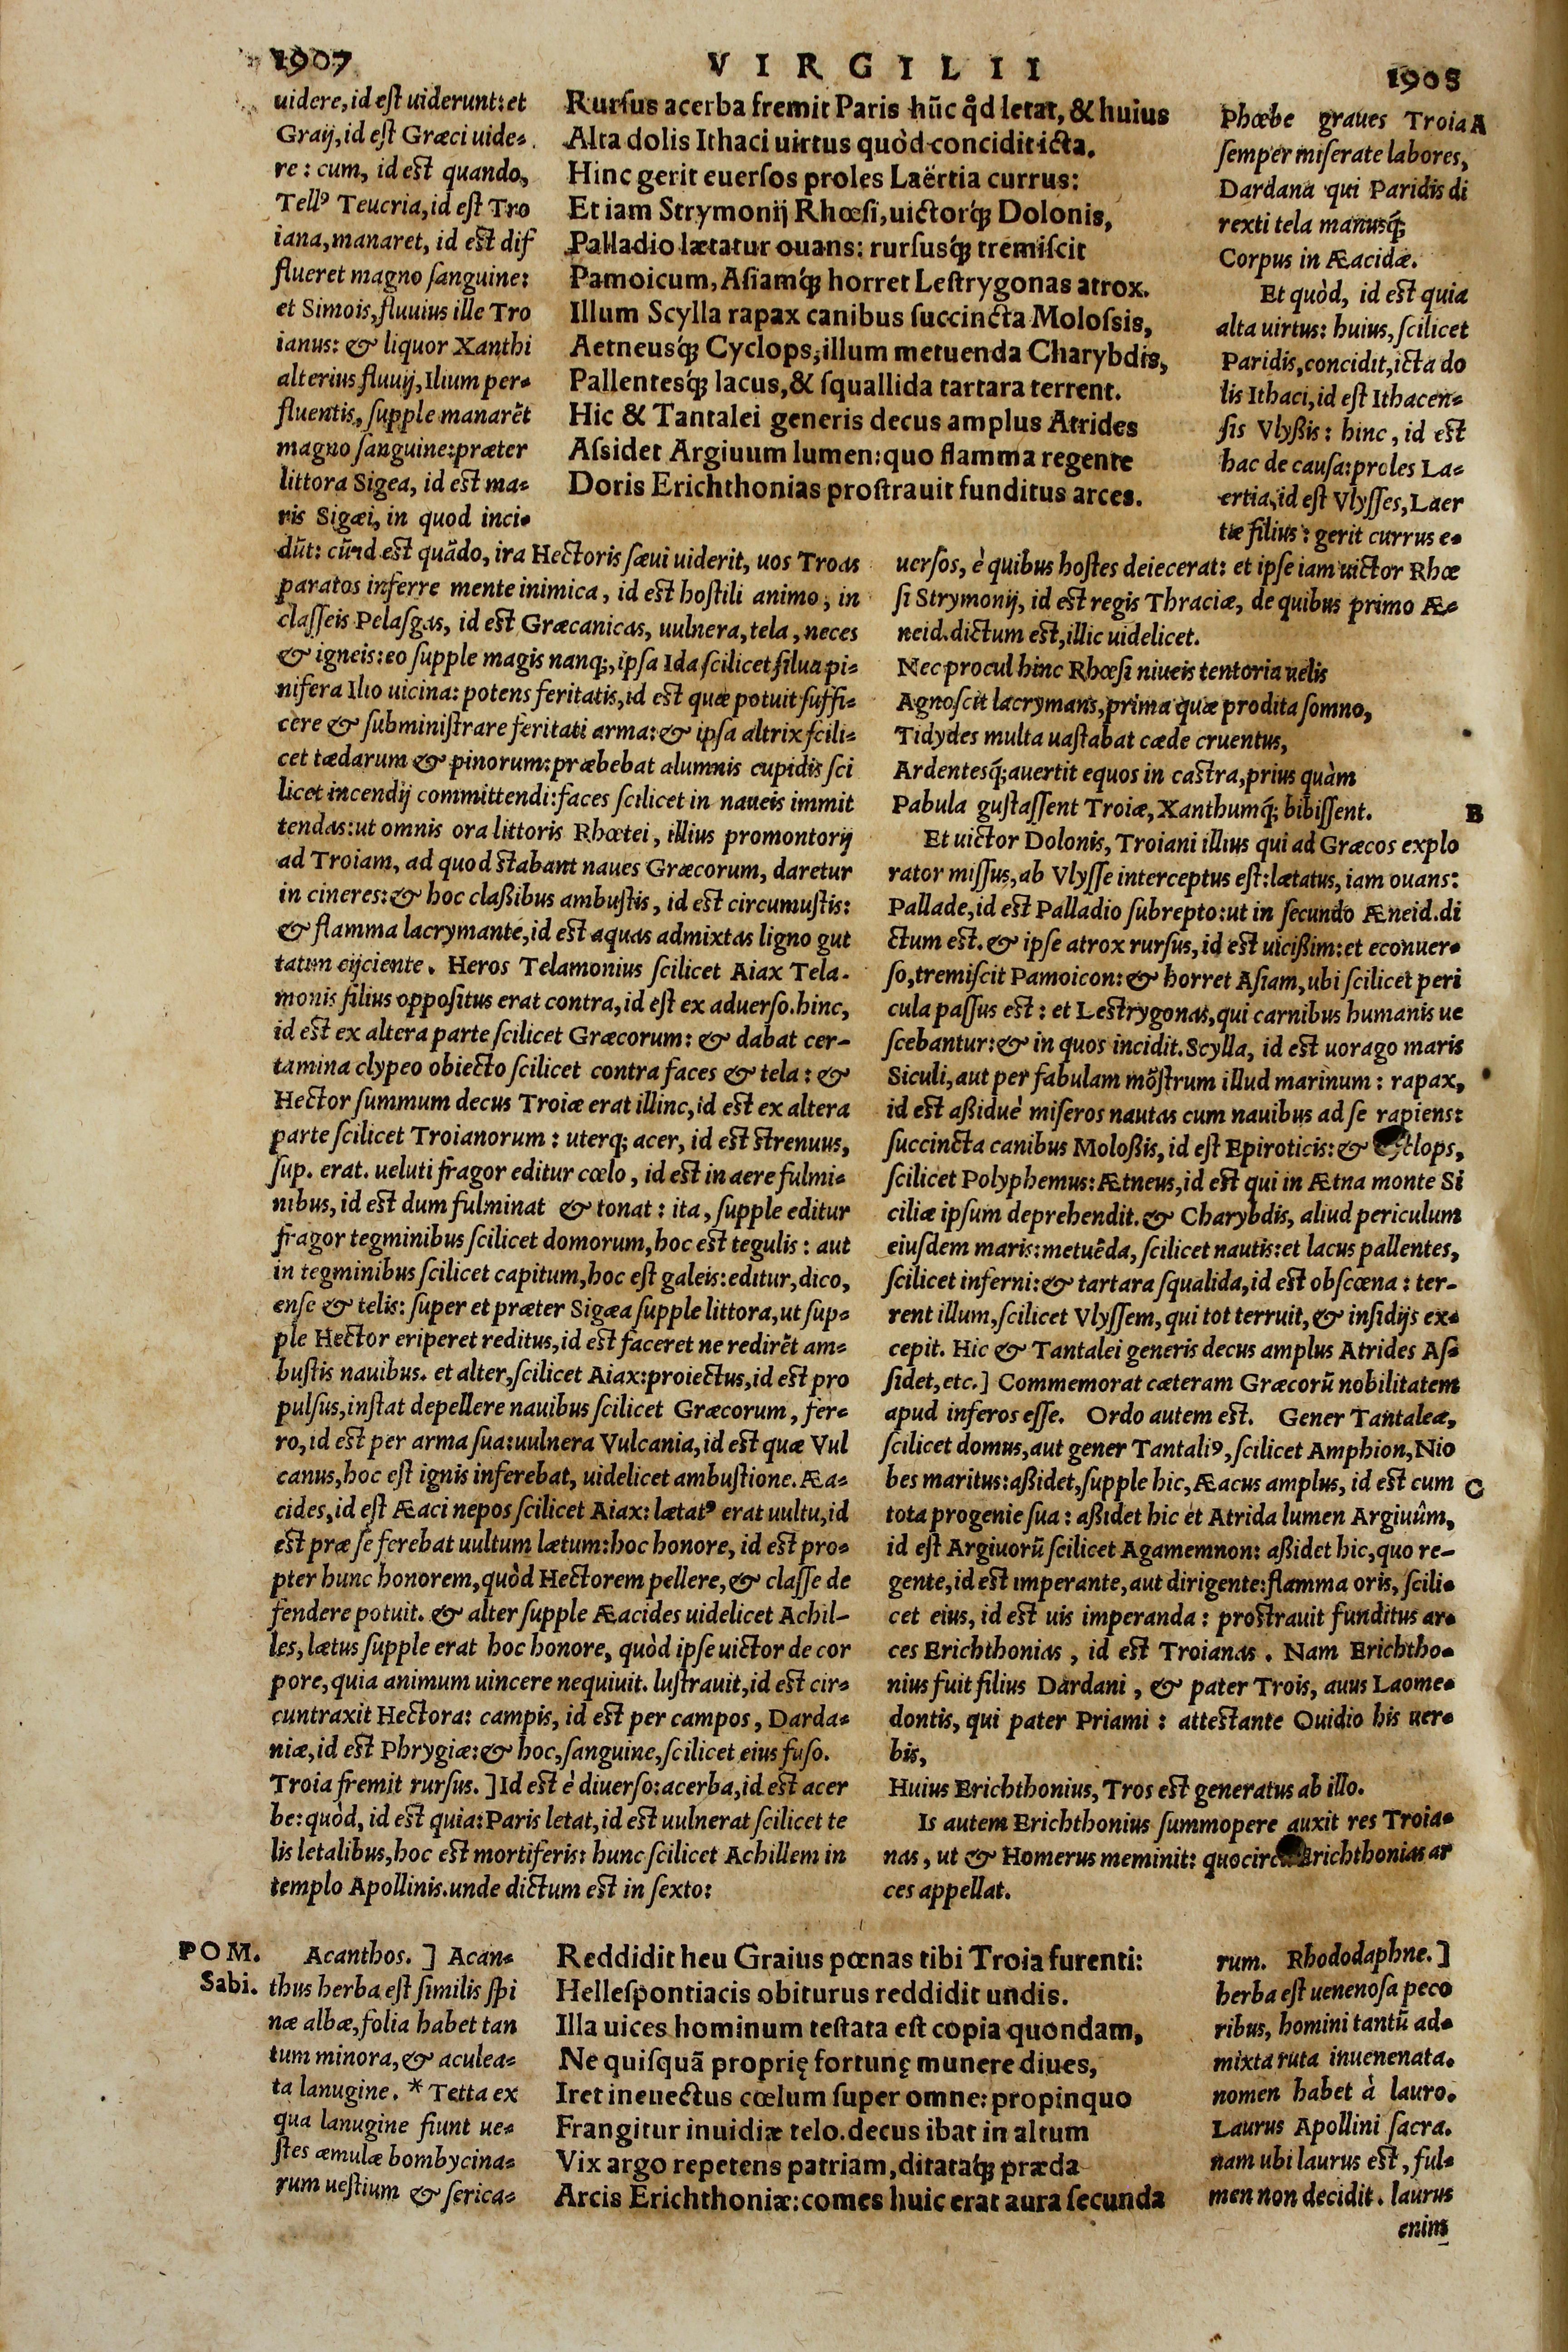 1907
VIRGILII
1908
Rursus acerba fremit Paris hũc q̊d letat, & huius
Alta dolis Ithaci uirtus quòd concidit icta.
Hinc gerit euersos proles Laërtia currus:
Et iam Strymonij Rhœsi, uictorq́; Dolonis,
Palladio lætatur ouans: rursusq́; tremiscit
Pamoicum, Asiamq́; horret Lestrygonas atrox.
Illum Scylla rapax canibus succincta Molossis,
Aetneusq́; Cyclops, illum metuenda Charybdis,
Pallentesq́; lacus, & squallida tartara terrent.
Hic & Tantalei generis decus amplus Atrides
Assidet Argiuum lumen: quo flamma regente
Doris Erichthonias prostrauit funditus arces.
uidere, id est uiderunt: et
Graij, id est Græci uide-
re: cum, id est quando,
Tellꝰ Teucria, id est Tro
iana, manaret, id est dif
flueret magno sanguine:
et Simois, fluuius ille Tro
ianus: & liquor Xanthi
alterius fluuij, Ilium per-
fluentis, supple manarẽt
magno sanguine: præter
littora Sigea, id est ma-
ris Sigæi, in quod inci-
dũt: cũ id est quãdo, ira Hectoris sæui uiderit, uos Troas
paratos inferre mente inimica, id est hostili animo, in
classeis Pelasgas, id est Græcanicas, uulnera, tela, neces
& igneis: eo supple magis nanq;, ipsa Ida scilicet silua pi-
nifera Ilio uicina: potens feritatis, id est quæ potuit suffi-
cere & subministrare feritati arma: & ipsa altrix scili-
cet tædarum & pinorum: præbebat alumnis cupidis sci
licet incendij committendi: faces scilicet in naueis immit
tendas: ut omnis ora littoris Rhœtei, illius promontorij
ad Troiam, ad quod stabant naues Græcorum, daretur
in cineres: & hoc claßibus ambustis, id est circumustis:
& flamma lacrymante, id est aquas admixtas ligno gut
tatim eijciente. Heros Telamonius scilicet Aiax Tela-
monis filius oppositus erat contra, id est ex aduerso. hinc,
id est ex altera parte scilicet Græcorum: & dabat cer-
tamina clypeo obiecto scilicet contra faces & tela: &
Hector summum decus Troiæ erat illinc, id est ex altera
parte scilicet Troianorum: uterq; acer, id est strenuus,
sup. erat. ueluti fragor editur cœlo, id est in aere fulmi-
nibus, id est dum fulminat & tonat: ita, supple editur
fragor tegminibus scilicet domorum, hoc est tegulis: aut
in tegminibus scilicet capitum, hoc est galeis: editur, dico,
ense & telis: super et præter Sigæa supple littora, ut sup-
ple Hector eriperet reditus, id est faceret ne redirẽt am-
bustis nauibus. et alter, scilicet Aiax: proiectus, id est pro
pulsus, instat depellere nauibus scilicet Græcorum, fer-
ro, id est per arma sua: uulnera Vulcania, id est quæ Vul
canus, hoc est ignis inferebat, uidelicet ambustione. Æa-
cides, id est Æaci nepos scilicet Aiax: lætatꝰ erat uultu, id
est præ se ferebat uultum lætum: hoc honore, id est pro-
pter hunc honorem, quòd Hectorem pellere, & classe de
fendere potuit. & alter supple Æacides uidelicet Achil-
les, lætus supple erat hoc honore, quòd ipse uictor de cor
pore, quia animum uincere nequiuit. lustrauit, id est cir-
cuntraxit Hectora: campis, id est per campos, Darda-
niæ, id est Phrygiæ: & hoc, sanguine, scilicet eius fuso.
Troia fremit rursus.] Id est è diuerso: acerba, id est acer
be: quòd, id est quia: Paris letat, id est uulnerat scilicet te
lis letalibus, hoc est mortiferis: hunc scilicet Achillem in
templo Apollinis. unde dictum est in sexto:
Phœbe graues Troia A
semper miserate labores,
Dardana qui Paridis di
rexti tela manusq́;
Corpus in Æacidæ.
Et quòd, id est quia
alta uirtus: huius, scilicet
Paridis, concidit, icta do
lis Ithaci, id est Ithacen-
sis Vlyßis: hinc, id est
hac de causa: proles La-
ertia, id est Vlysses, Laer
tæ filius: gerit currus e-
uersos, è quibus hostes deiecerat: et ipse iam uictor Rhœ
si Strymonij, id est regis Thraciæ, de quibus primo Æ-
neid. dictum est, illic uidelicet.
Nec procul hinc Rhœsi niueis tentoria uelis
Agnoscit lacrymans, prima quæ prodita somno,
Tidydes multa uastabat cæde cruentus,
Ardentesq́; auertit equos in castra, prius quàm
Pabula gustassent Troiæ, Xanthumq́; bibissent. B
Et uictor Dolonis, Troiani illius qui ad Græcos explo
rator missus, ab Vlysse interceptus est: lætatus, iam ouans:
Pallade, id est Palladio subrepto: ut in secundo Æneid. di
ctum est. & ipse atrox rursus, id est uicißim: et econuer-
so, tremiscit Pamoicon: & horret Asiam, ubi scilicet peri
cula passus est: et Lestrygonas, qui carnibus humanis ue
scebantur: & in quos incidit. Scylla, id est uorago maris
Siculi, aut per fabulam mõstrum illud marinum: rapax,
id est aßiduè miseros nautas cum nauibus ad se rapiens:
succincta canibus Moloßis, id est Epiroticis: & Cyclops,
scilicet Polyphemus: Ætneus, id est qui in Ætna monte Si
ciliæ ipsum deprehendit. & Charybdis, aliud periculum
eiusdem maris: metuẽda, scilicet nautis: et lacus pallentes,
scilicet inferni: & tartara squalida, id est obscœna: ter-
rent illum, scilicet Vlyssem, qui tot terruit, & insidijs ex-
cepit. Hic & Tantalei generis decus amplus Atrides As-
sidet, etc.] Commemorat cæteram Græcorũ nobilitatem
apud inferos esse. Ordo autem est. Gener Tantaleæ,
scilicet domus, aut gener Tantaliꝰ, scilicet Amphion, Nio
bes maritus: aßidet, supple hic, Æacus amplus, id est cum C
tota progenie sua: aßidet hic et Atrida lumen Argiuûm,
id est Argiuorũ scilicet Agamemnon: aßidet hic, quo re-
gente, id est imperante, aut dirigente: flamma oris, scili-
cet eius, id est uis imperanda: prostrauit funditus ar-
ces Erichthonias, id est Troianas. Nam Erichtho-
nius fuit filius Dardani, & pater Trois, auus Laome-
dontis, qui pater Priami: attestante Ouidio his uer-
bis,
Huius Erichthonius, Tros est generatus ab illo.
Is autem Erichthonius summopere auxit res Troia-
nas, ut & Homerus meminit: quocirca Erichthonias ar
ces appellat.
POM.
Sabi.
Acanthos.] Acan-
thus herba est similis spi
næ albæ, folia habet tan
tum minora, & aculea-
ta lanugine. * Tetta ex
qua lanugine fiunt ue-
stes æmulæ bombycina-
rum uestium & serica-
Reddidit heu Graius pœnas tibi Troia furenti:
Hellespontiacis obiturus reddidit undis.
Illa uices hominum testata est copia quondam,
Ne quisquã proprię fortunę munere diues,
Iret ineuectus cœlum super omne: propinquo
Frangitur inuidiæ telo. decus ibat in altum
Vix argo repetens patriam, ditataq́; præda
Arcis Erichthoniæ: comes huic erat aura secunda
rum. Rhododaphne.]
herba est uenenosa peco
ribus, homini tantũ ad-
mixta ruta inuenenata.
nomen habet à lauro.
Laurus Apollini sacra.
nam ubi laurus est, ful-
men non decidit. laurus
enim